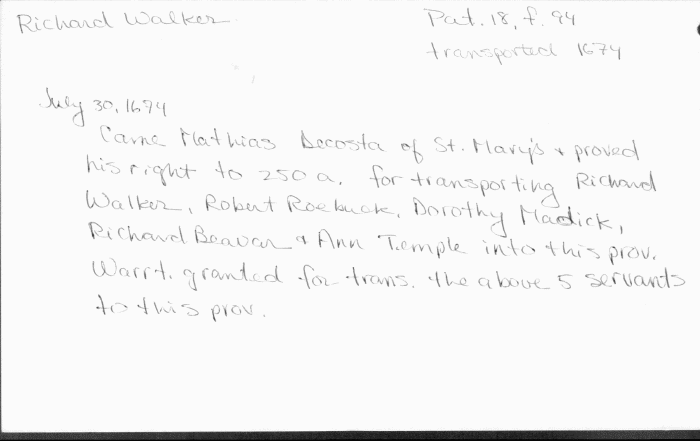 Richard Walker
Pat. 18, f. 94
transported 1674
July 30, 1674
Came Mathias Decosta of St. Mary's & proved
his right to 250 a. for transporting Richard
Walker, Robert Roebuck, Dorothy Madick,
Richard Beavar & Ann Temple into this prov.
Warrt. granted for trans. the above 5 servants
to this prov.